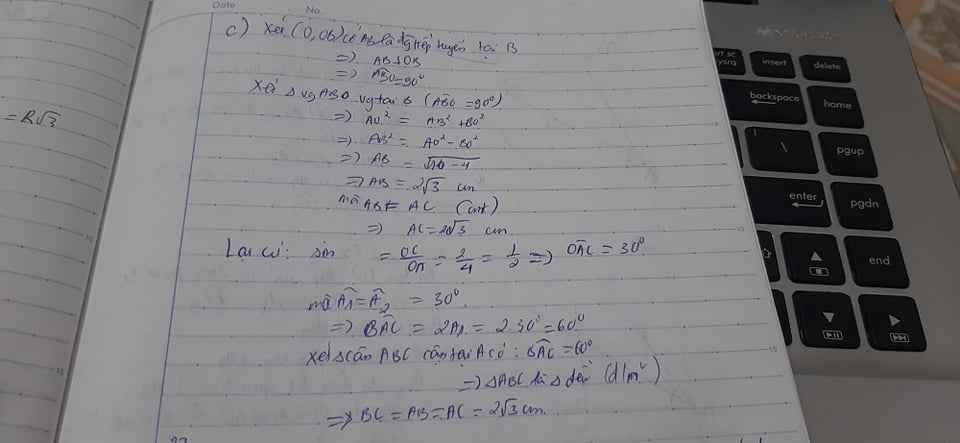 Date No.
c) Xét (O,OB) có AB là đg tiếp tuyến tại B
=> AB⊥OB
=> ABO=90°
Xét Δ vg ABO vg tại B (ABO =90°)
=> AO² = AB² + BO²
=> AB² = AO² - BO²
=> AB = √16 - 4
=> AB = 2√3 cm
mà AB = AC (cmt)
=> AC = 2√3 cm
Lại có: sin = OC/OA = 2/4 = 1/2 => OAC = 30°.
mà A1 = A2 = 30°
=> BAC = 2A1 = 2 30° = 60°
Xét Δ cân ABC cân tại A có: BAC = 60°
=> ΔABC là Δ đều (đlm)
=> BC = AB = AC = 2√3 cm.
= R√3
prt sc
sysrq
insert
delete
backspace
home
\
pgup
enter
pgdn
end